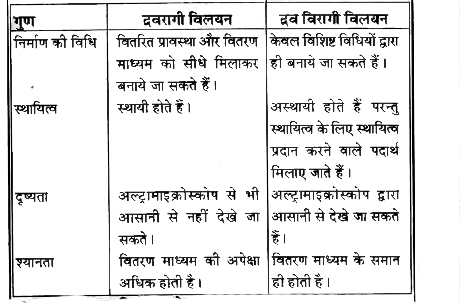 गुण द्रवरागी विलयन द्रव विरागी विलयन
निर्माण की विधि वितरित प्रावस्था और वितरण केवल विशिष्ट विधियों द्वारा
माध्यम को सीधे मिलाकर ही बनाये जा सकते हैं।
बनाये जा सकते हैं।
स्थायित्व स्थायी होते हैं। अस्थायी होते हैं परन्तु
स्थायित्व के लिए स्थायित्व
प्रदान करने वाले पदार्थ
मिलाए जाते हैं।
दृष्यता अल्ट्रामाइक्रोस्कोप से भी अल्ट्रामाइक्रोस्कोप द्वारा
आसानी से नहीं देखे जा आसानी से देखे जा सकते
सकते। हैं।
श्यानता वितरण माध्यम की अपेक्षा वितरण माध्यम के समान
अधिक होती है। ही होती है।